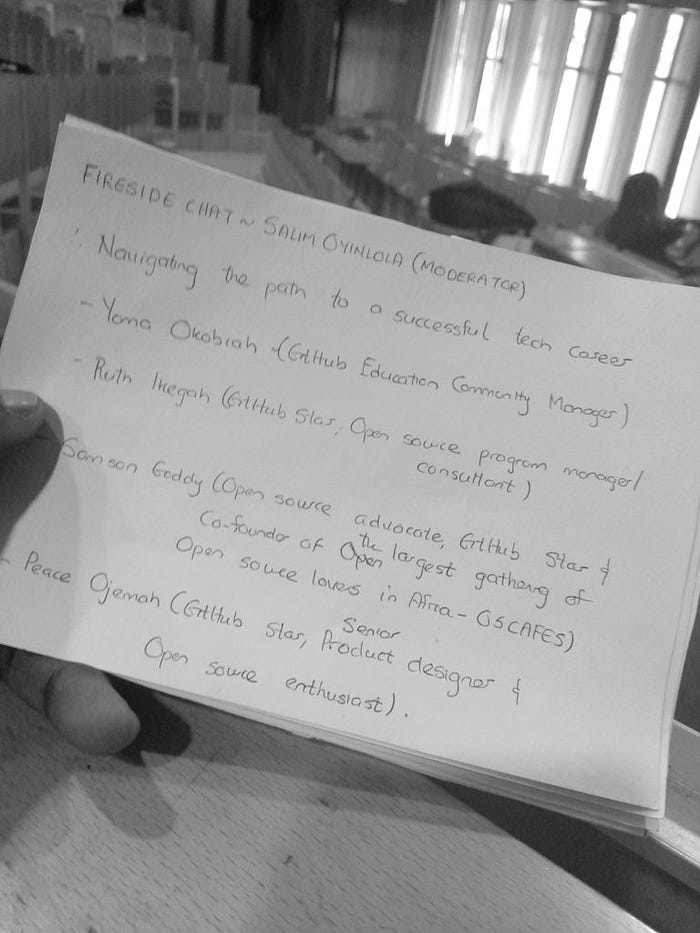 FIRESIDE CHAT ~ SALIM OYINLOLA (MODERATOR)
: Navigating the path to a successful tech career
- Yoma Okobiah - (GitHub Education Community Manager)
- Ruth Ikegah (GitHub Star, Open source program manager/
consultant)
- Samson Goddy (Open source advocate, GitHub Star &
Co-founder of Open the largest gathering of
Open source lovers in Africa - OSCAFES)
- Peace Ojemah (GitHub Star, Senior Product designer &
Open source enthusiast).